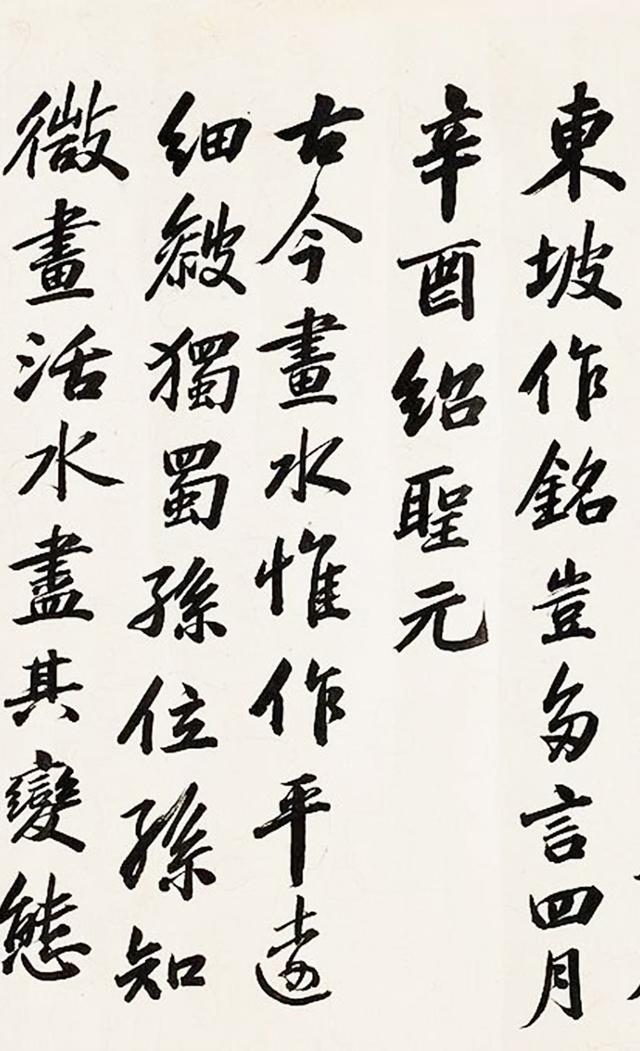 東坡作銘豈多言四月
辛酉紹聖元
古今畫水惟作平遠
細皺獨蜀孫位孫知
微畫活水盡其變態